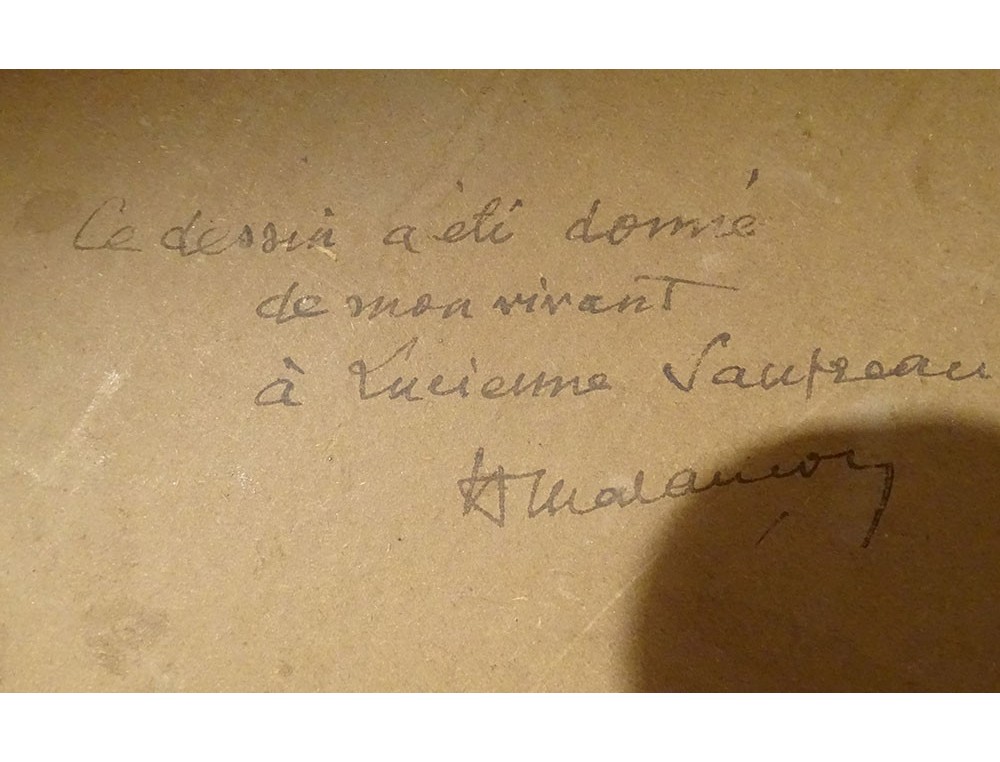 Ce dessin a été donné
de mon vivant
à Lucienne Saupreau